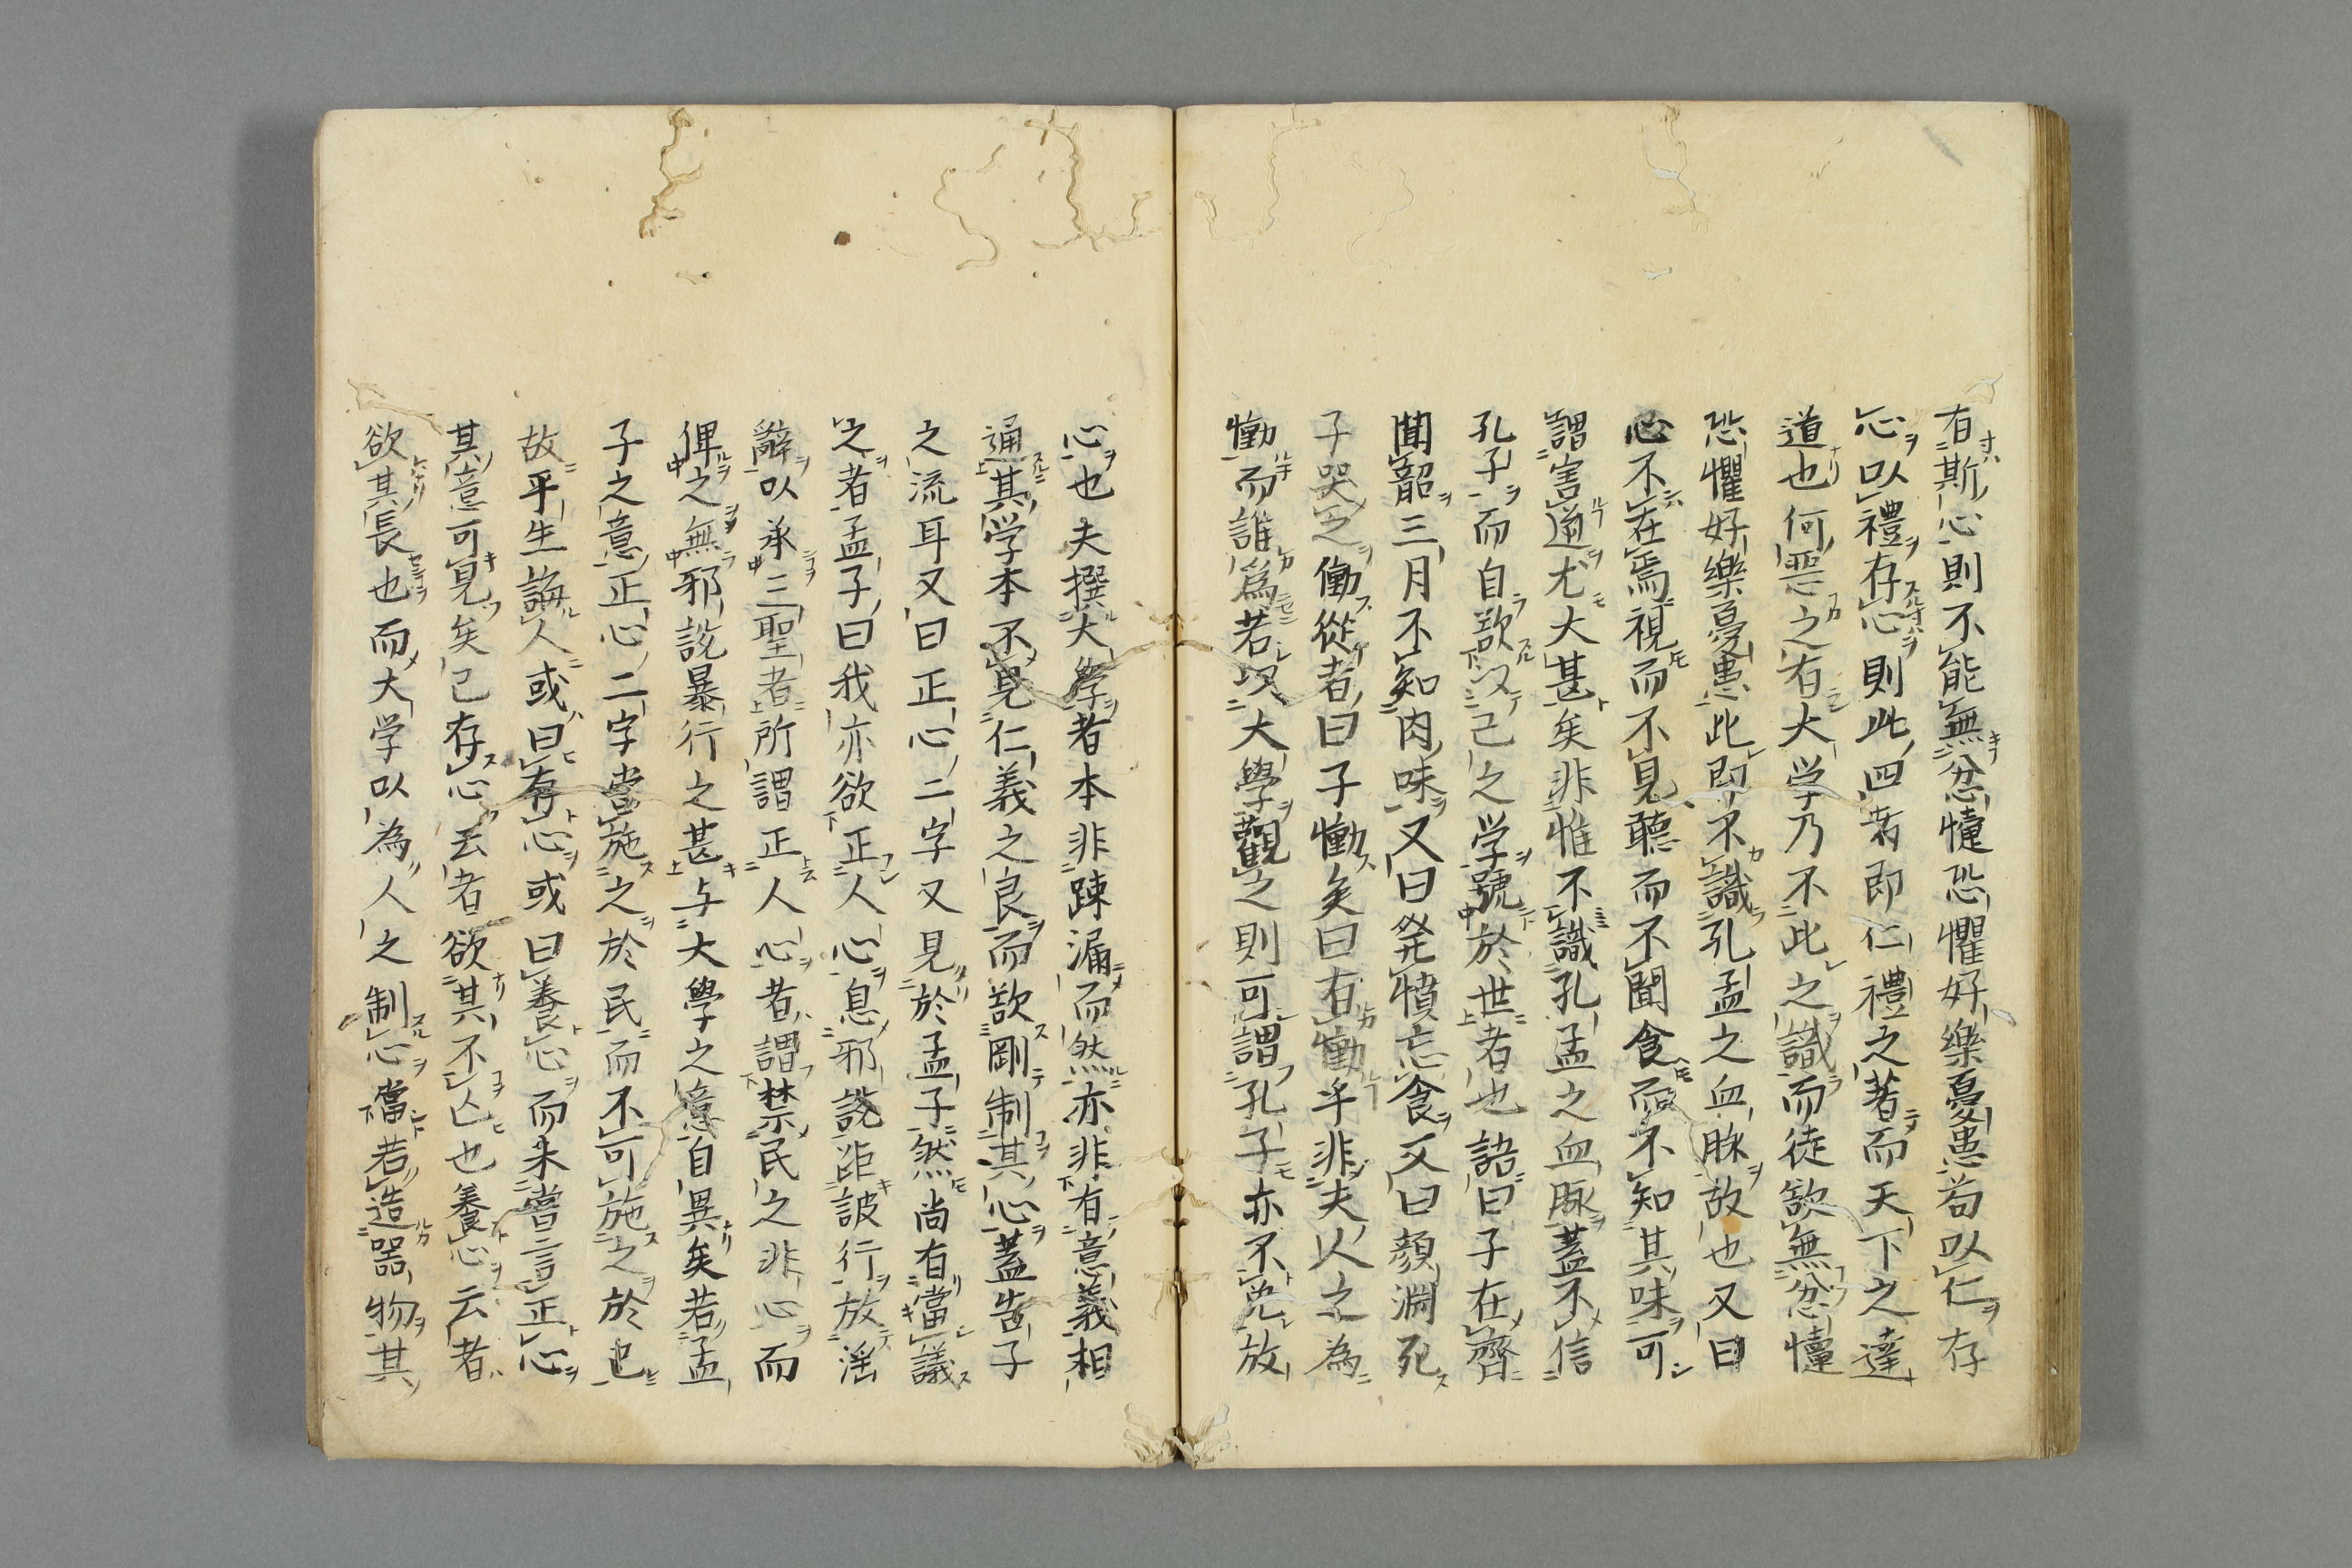 有斯心則不能無忿懥恐懼好樂憂患苟以仁存
心以禮存心則此四者即仁禮之著而天下之達
道也何惡之有大学乃不此之識而徒欲無忿懥
恐懼好樂憂患此即不識孔孟之血脉故也又曰
心不在焉視而不見聽而不聞食而不知其味可
謂害道尤大甚矣非惟不識孔孟之血脉蓋不信
孔子而自欲以己之学號於世者也語曰子在齊
聞韶三月不知肉味又曰発憤忘食又曰顔淵死
子哭之慟從者曰子慟矣曰有慟乎非夫人之為
慟而誰為若以大學觀之則可謂孔子亦不免放
心也夫撰大學者本非踈漏而然亦非有意義相
通其学本不見仁義之良而欲剛制其心蓋告子
之流耳又曰正心二字又見於孟子然尚有當議
之者孟子曰我亦欲正人心息邪説距詖行放淫
辭以承三聖者所謂正人心者謂禁民之非心而
俾之無邪説暴行之甚与大學之意自異矣若孟
子之意正心二字當施之於民而不可施之於己
故平生誨人或曰存心或曰養心而未嘗言正心
其意可見矣已存心云者欲其不亡也養心云者
欲其長也而大学以為人之制心當若造器物其